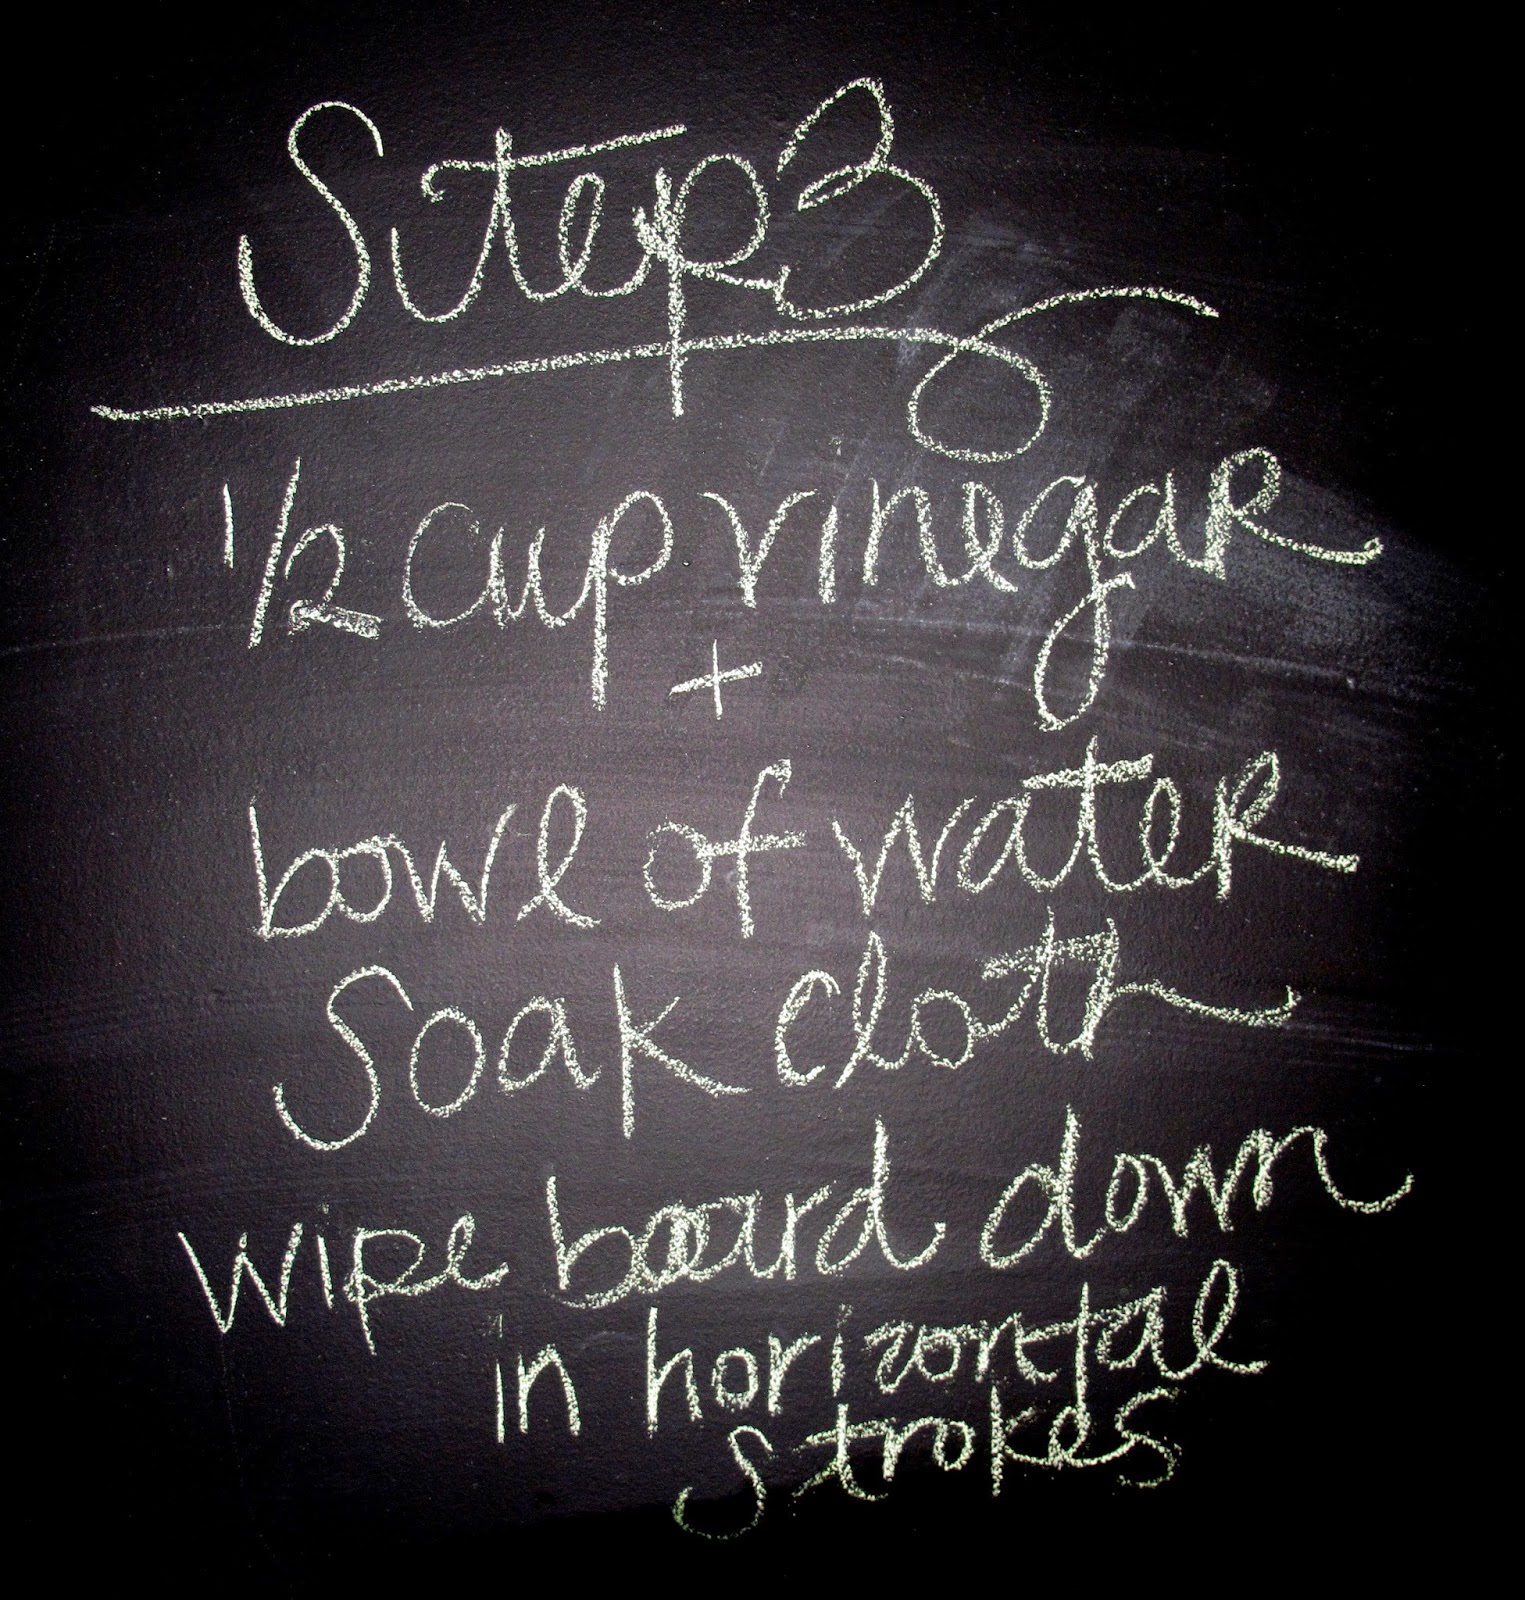 Step 3
1/2 cup vinegar
+
bowl of water
Soak cloth
wipe board down
in horizontal
strokes